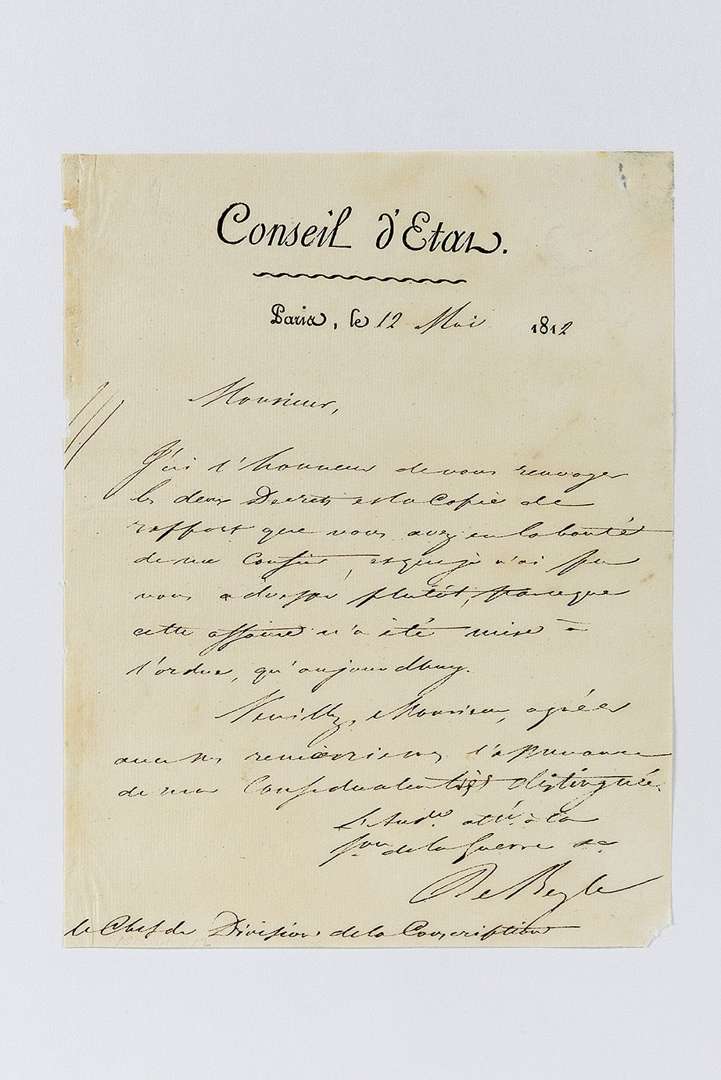 Conseil d'Etat.
Paris, le 12 Mai 1812
Monsieur,
J'ai l'honneur de vous renvoyer
les deux Decrets et la Copie de
rapport que vous avez eu la bonté
de me Confier, et que je n'ai pu
vous adresser plutôt, parceque
cette affaire n'a été mise à
l'ordre, qu'aujourdhuy.
Veuillez, Monsieur, agréer
avec mes remerciemens l'assurance
de ma Consideration très distinguée.
L'Audr. att. à la
Son de la Guerre
De Beyle
le Chef de Division de la Conscription